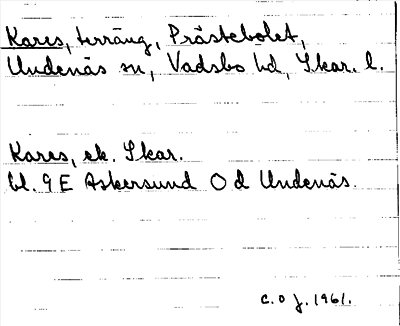 Kares, terräng, Prästebolet,
Undenäs sn, Vadsbo hd, Skar. l.
Kares, ek. Skar.
bl. 9 E Askersund O d Undenäs.
C. o J. 1961.